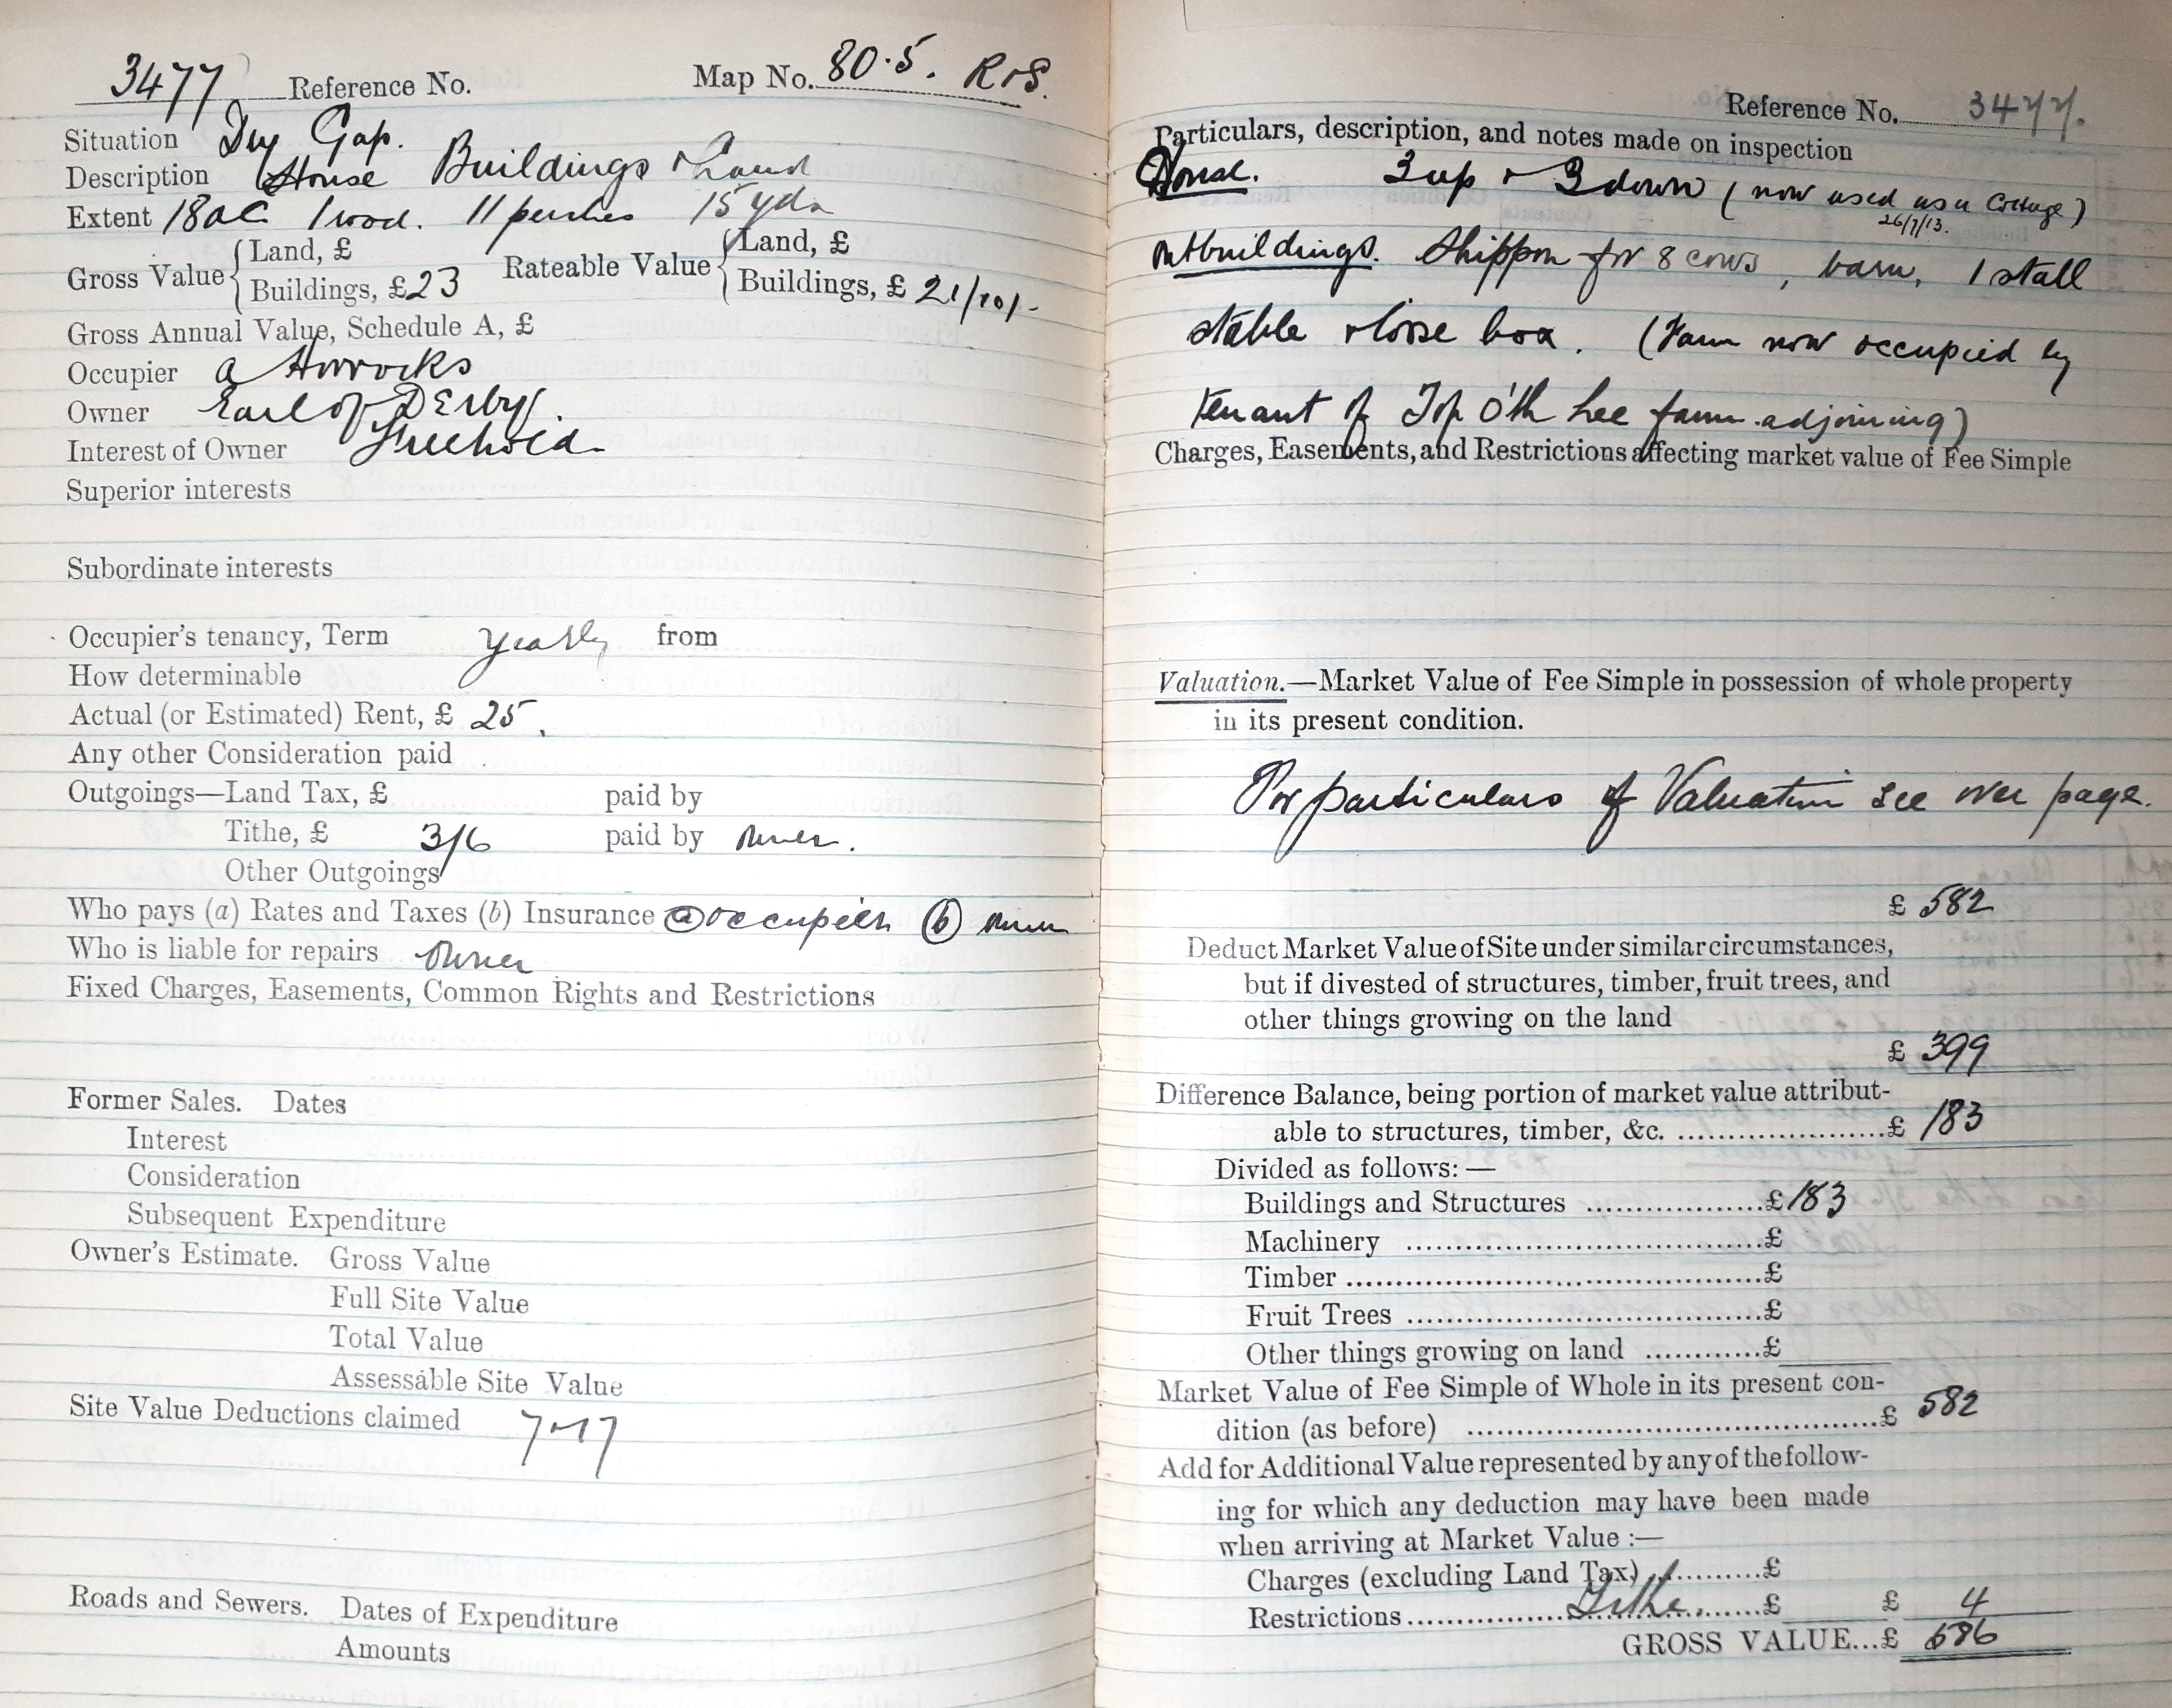 3477 Reference No. Map No. 80.5. R&S.
Situation Dry Gap.
Description House Buildings & Land
Extent 18ac 1 rood. 11 perches 15 yds
Gross Value { Land, £ Rateable Value { Land, £
Buildings, £23 Buildings, £ 21/10/-
Gross Annual Value, Schedule A, £
Occupier A Horrocks
Owner Earl of Derby.
Interest of Owner Freehold
Superior interests
Subordinate interests
Occupier's tenancy, Term yearly from
How determinable
Actual (or Estimated) Rent, £ 25.
Any other Consideration paid
Outgoings—Land Tax, £ paid by
Tithe, £ 3/6 paid by owner.
Other Outgoings
Who pays (a) Rates and Taxes (b) Insurance (a) occupier (b) owner
Who is liable for repairs Owner
Fixed Charges, Easements, Common Rights and Restrictions
Former Sales. Dates
Interest
Consideration
Subsequent Expenditure
Owner's Estimate. Gross Value
Full Site Value
Total Value
Assessable Site Value
Site Value Deductions claimed
Roads and Sewers. Dates of Expenditure
Amounts
Reference No. 3477.
Particulars, description, and notes made on inspection
House. 3 up & 3 down (now used as a cottage)
26/7/13.
Outbuildings. Shippon for 8 cows, barn, 1 stall
stable & loose box. (Farm now occupied by
tenant of Top O'th Lee farm adjoining)
Charges, Easements, and Restrictions affecting market value of Fee Simple
Valuation.—Market Value of Fee Simple in possession of whole property
in its present condition.
For particulars of Valuation see over page.
£ 582
Deduct Market Value of Site under similar circumstances,
but if divested of structures, timber, fruit trees, and
other things growing on the land
£ 399
Difference Balance, being portion of market value attribut-
able to structures, timber, &c. ....................£ 183
Divided as follows:—
Buildings and Structures ..................£183
Machinery ....................................£
Timber ..........................................£
Fruit Trees ....................................£
Other things growing on land ............£
Market Value of Fee Simple of Whole in its present con-
dition (as before) ..........................................£ 582
Add for Additional Value represented by any of the follow-
ing for which any deduction may have been made
when arriving at Market Value :—
Charges (excluding Land Tax) ............£
Restrictions........Tithe........£ £ 4
GROSS VALUE...£ 586